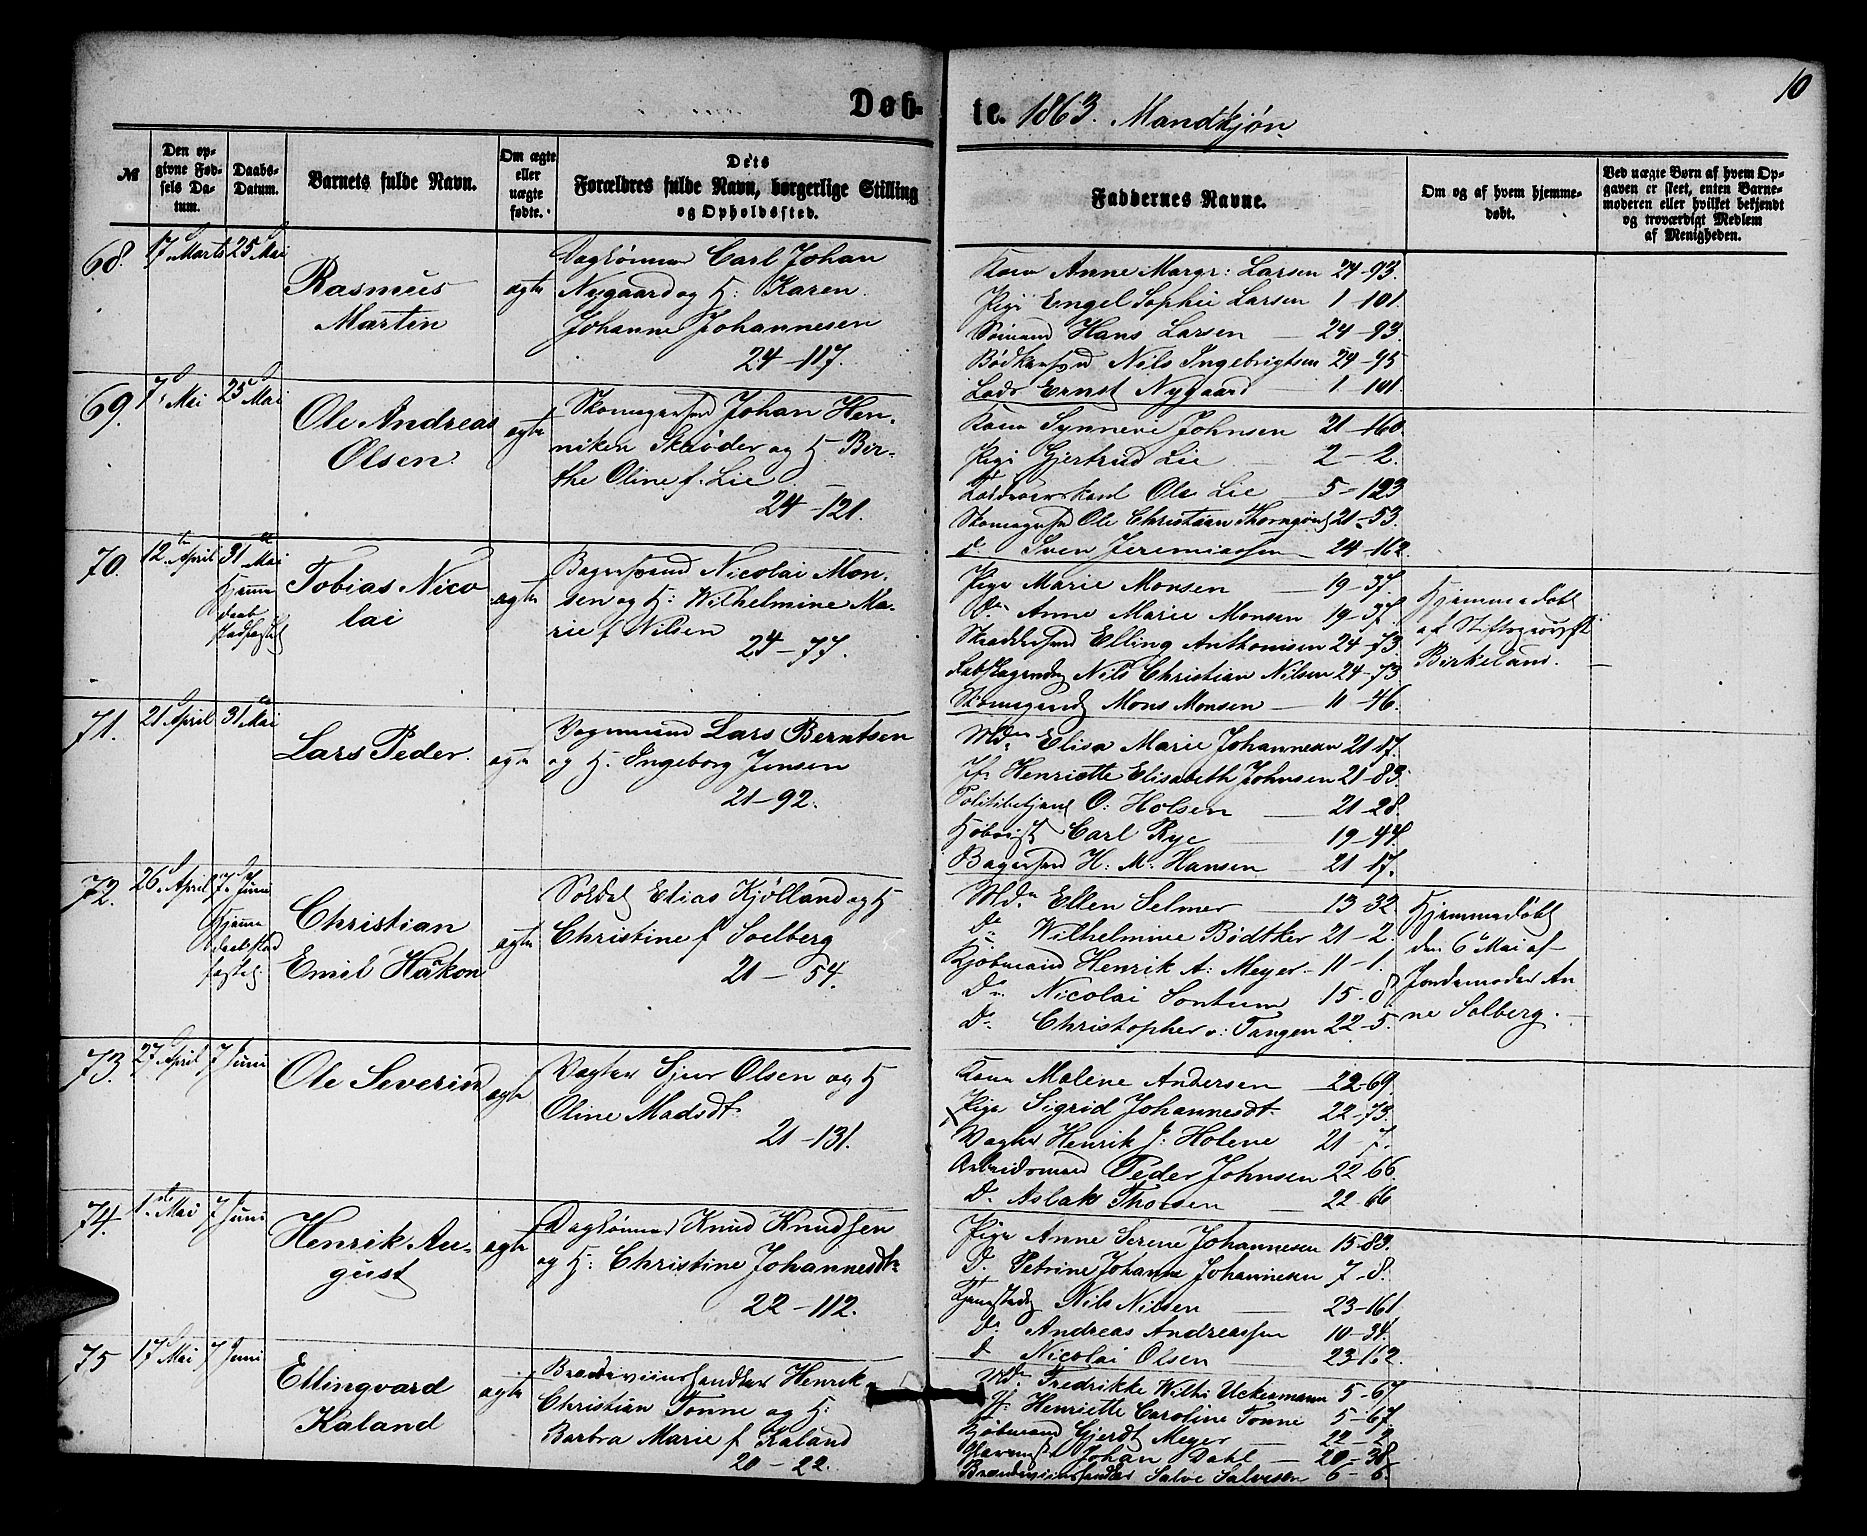 10
Døb-
te. 1863. Mandkjøn
№
Den op-
givne Fød-
sels Da-
tum.
Daabs-
Datum.
Barnets fulde Navn.
Om ægte
eller
uægte
fødte.
Dets
Forældres fulde Navn, borgerlige Stilling
og Opholdssted.
Faddernes Navne.
Om og af hvem hjemme-
døbt.
Ved uægte Børn af hvem Op-
gaven er skeet, enten Barne-
moderen eller hvilket bekjendt
og troværdigt Medlem
af Menigheden.
68. 17 Marts 25 Mai
Rasmus
Martin
ægte
Dagkönner Carl Johan
Nygaard og H: Karen
Johanne Johannesen
24-117.
Kone Anne Margr: Larsen 24-93.
Pige Engel Sophie Larsen 1-101.
Sömand Hans Larsen 24-93.
Bödkersvd Nils Ingebrigtsen 24-95
Lods Ernst Nygaard 1-101.
69. 7 Mai 25 Mai
Ole Andreas
Olsen.
ægte
Skomagersvd Johan Hen-
riken Skrøder og H. Bir-
the Oline f. Lie
24-121.
Kone Synneve Johnsen 21-160
Pige Gjertrud Lie 2-2.
Ole Lie 5-123
Skomagersvd Ole Christian 21-53.
d. Sven Jeremiassen 24-162.
70. 12 April 31 Mai
Hjemme
daab
stadfæstet
Tobias Nico
lai
ægte
Bagersvend Nicolai Mon-
sen og H: Wilhelmine Ma-
rie f Nilsen
24-77.
Pige Marie Monsen 19-37.
Do Anne Marie Monsen 19-37.
Skræddersvd Elling Anthonisen 24-73
Nils Christian Nilsen 24-73
Mons Monsen 11-46.
Hjemmedöbt
af Stiftsprovst
Birkeland.
71. 21 April 31 Mai
Lars Peder.
ægte
Vognmand Lars Berntsen
og H. Ingeborg Jensen
21-92.
Md. Elisa Marie Johannesen 21-17.
Jf. Henriette Elisabeth Johnsen 21-83.
Politibetjent O: Holsen 21-28.
Carl Rye 19-44.
Bagersvd H. M. Hansen 21-17.
72. 26 April 7. Juni
Hjemme
daab stad
fæstet.
Christian
Emil Håkon
ægte
Soldat Elias Kjölland og H
Christine f Solberg
21-54.
Md. Ellen Selmer 13-32
Do Wilhelmine Bödtker 21-2.
Kjöbmand Henrik A: Meyer 11-1.
Do Nicolai Sontum 15-8.
Do Christopher v: Tangen 22-5.
Hjemmedöbt
den 6 Mai af
Jordemoder An
ne Solberg.
73. 27 April 7 Juni
Ole Severin
ægte
Vægter Sjur Olsen og H
Oline Madsdt.
21-131.
Kone Malene Andersen 22-69.
Pige Sigrid Johannesdt. 22-73.
Vægter Henrik J: Holene 21-7.
Arbeidsmand Peder Johnsen 22-66.
D. Aslak Thorsen 22-66
74. 1ste Mai 7 Juni
Henrik Au-
gust
ægte
Dagkönner Knud Knudsen
og H: Christine Johannesdt.
22-112.
Pige Anne Serene Johannesen 15-83.
D. Petrine Johanne Johannesen 7-8.
Nils Nilsen 23-161
Do Andreas Andreassen 10-34.
d Nicolai Olsen 23-162.
75 17 Mai 7 Juni
Ellingvard
Kaland
ægte
Brændeviinshandler Henrik
Christian Tonne og H:
Barbra Marie f Kaland
20-22.
Md. Fredrikke Wilh: Uckermann 5-67
Jf. Henriette Caroline Tonne 5-67.
Kjöbmand Gjerdt Meyer 22-2.
Johan Dahl 20-38.
Brændeviinshandler Salve Salvesen 6-6.